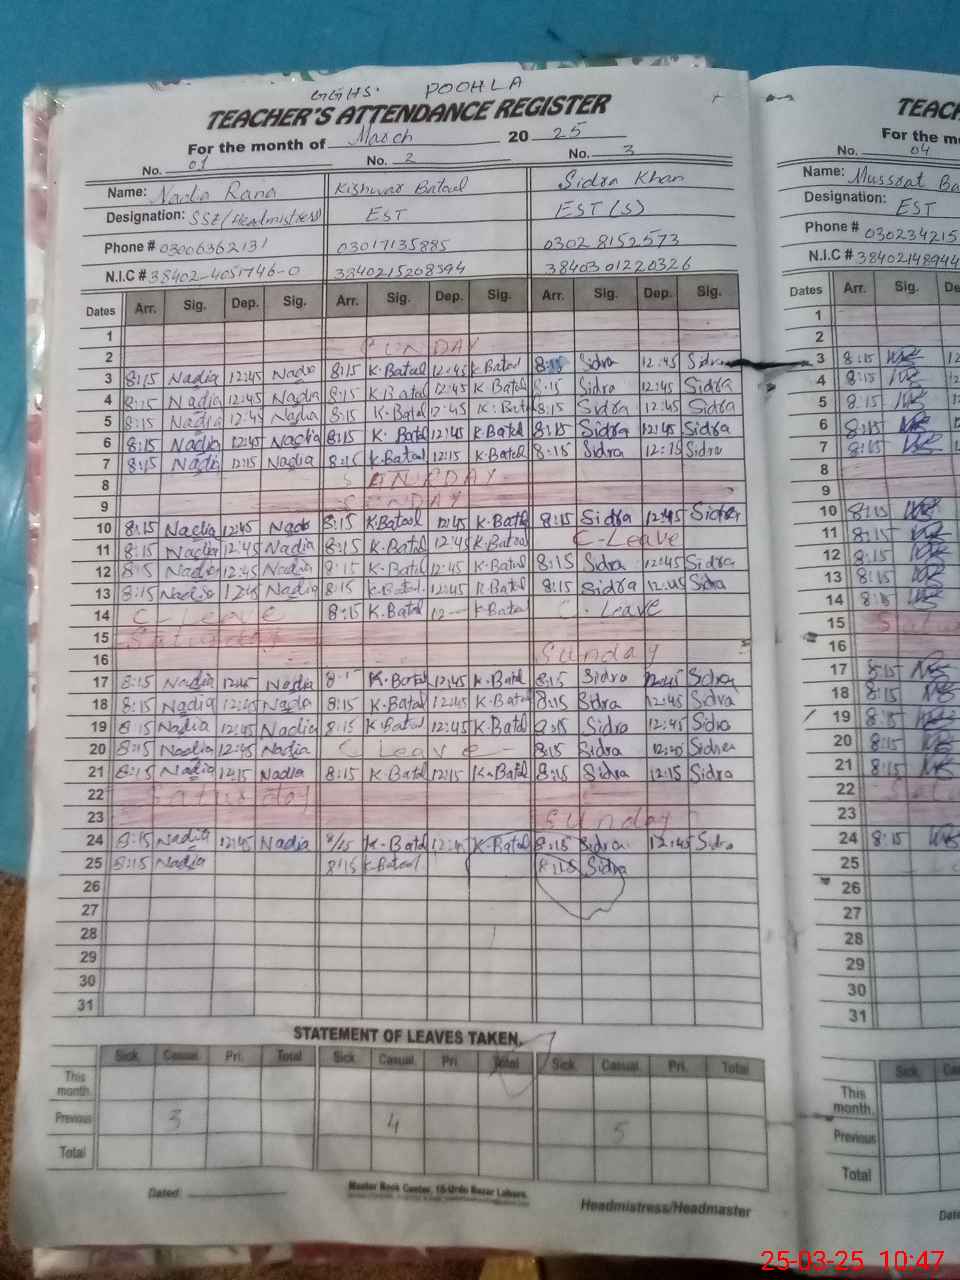 GGHS. POOHLA
TEACHER'S ATTENDANCE REGISTER
For the month of March 20 25
No. 01 No. 2 No. 3
Name: Nadia Rana Kishwar Batool Sidra Khan
Designation: SSE/Headmistress EST EST (S)
Phone # 03006362131 03017135885 0302 8152573
N.I.C # 38402-4051746-0 3840215208594 3840301220326
Dates Arr. Sig. Dep. Sig. Arr. Sig. Dep. Sig. Arr. Sig. Dep. Sig.
1
2 SUNDAY
3 8:15 Nadia 12:45 Nadia 8:15 K.Batool 12:45 K.Batool 8:15 Sidra 12:45 Sidra
4 8:15 Nadia 12:45 Nadia 8:15 K.Batool 12:45 K.Batool 8:15 Sidra 12:45 Sidra
5 8:15 Nadia 12:45 Nadia 8:15 K.Batool 12:45 K.Batool 8:15 Sidra 12:45 Sidra
6 8:15 Nadia 12:45 Nadia 8:15 K.Batool 12:45 K.Batool 8:15 Sidra 12:45 Sidra
7 8:15 Nadia 12:15 Nadia 8:15 K.Batool 12:15 K.Batool 8:15 Sidra 12:15 Sidra
8
9 SUNDAY
10 8:15 Nadia 12:45 Nadia 8:15 K.Batool 12:45 K.Batool 8:15 Sidra 12:45 Sidra
11 8:15 Nadia 12:45 Nadia 8:15 K.Batool 12:45 K.Batool C-Leave
12 8:15 Nadia 12:45 Nadia 8:15 K.Batool 12:45 K.Batool 8:15 Sidra 12:45 Sidra
13 8:15 Nadia 12:45 Nadia 8:15 K.Batool 12:45 K.Batool 8:15 Sidra 12:45 Sidra
14 C-Leave 8:15 K.Batool 12 K.Batool C. Leave
15 Saturday
16 Sunday
17 8:15 Nadia 12:45 Nadia K.Batool 12:45 K.Batool 8:15 Sidra 12:45 Sidra
18 8:15 Nadia 12:45 Nadia 8:15 K.Batool 12:45 K.Batool 8:15 Sidra 12:45 Sidra
19 8:15 Nadia 12:45 Nadia 8:15 K.Batool 12:45 K.Batool 8:15 Sidra 12:45 Sidra
20 8:15 Nadia 12:45 Nadia C Leave 8:15 Sidra Sidra
21 8:15 Nadia 12:15 Nadia 8:15 K.Batool 12:15 K.Batool 8:15 Sidra 12:15 Sidra
22 Saturday
23 Sunday
24 8:15 Nadia 12:45 Nadia 8/15 K.Batool 12:45 K.Batool 8:15 Sidra 12:45 Sidra
25 8:15 Nadia 8:15 K.Batool 8:15 Sidra
26
27
28
29
30
31
STATEMENT OF LEAVES TAKEN.
Sick. Casual. Pri. Total Sick. Casual. Pri Total Sick. Casual. Pri. Total
This month.
Previous 3 4 5
Total
Dated
Master Book Center, 18-Urdu Bazar Lahore.
Headmistress/Headmaster
TEACH
For the mo
No. 04
Name: Mussrat Ba
Designation: EST
Phone # 030234215
N.I.C # 38402148944
Dates Arr. Sig. De
1
2
3 8:15 12
4 8:15
5 8:15
6 8:15
7 8:15
8
9
10 8:15
11 8:15
12 8:15
13 8:15
14 8:15
15
16
17 8:15
18 8:15
19 8:15
20 8:15
21 8:15
22
23
24 8:15
25
26
27
28
29
30
31
Sick. Ca
This month.
Previous
Total
Date
25-03-25 10:47